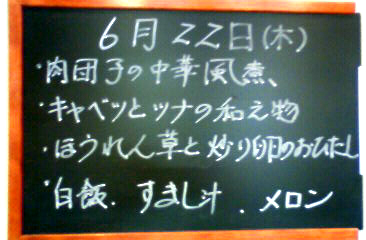 6月22日(木)
・肉団子の中華風煮、
・キャベツとツナの和え物
・ほうれん草と炒り卵のおひたし
・白飯.すまし汁.メロン